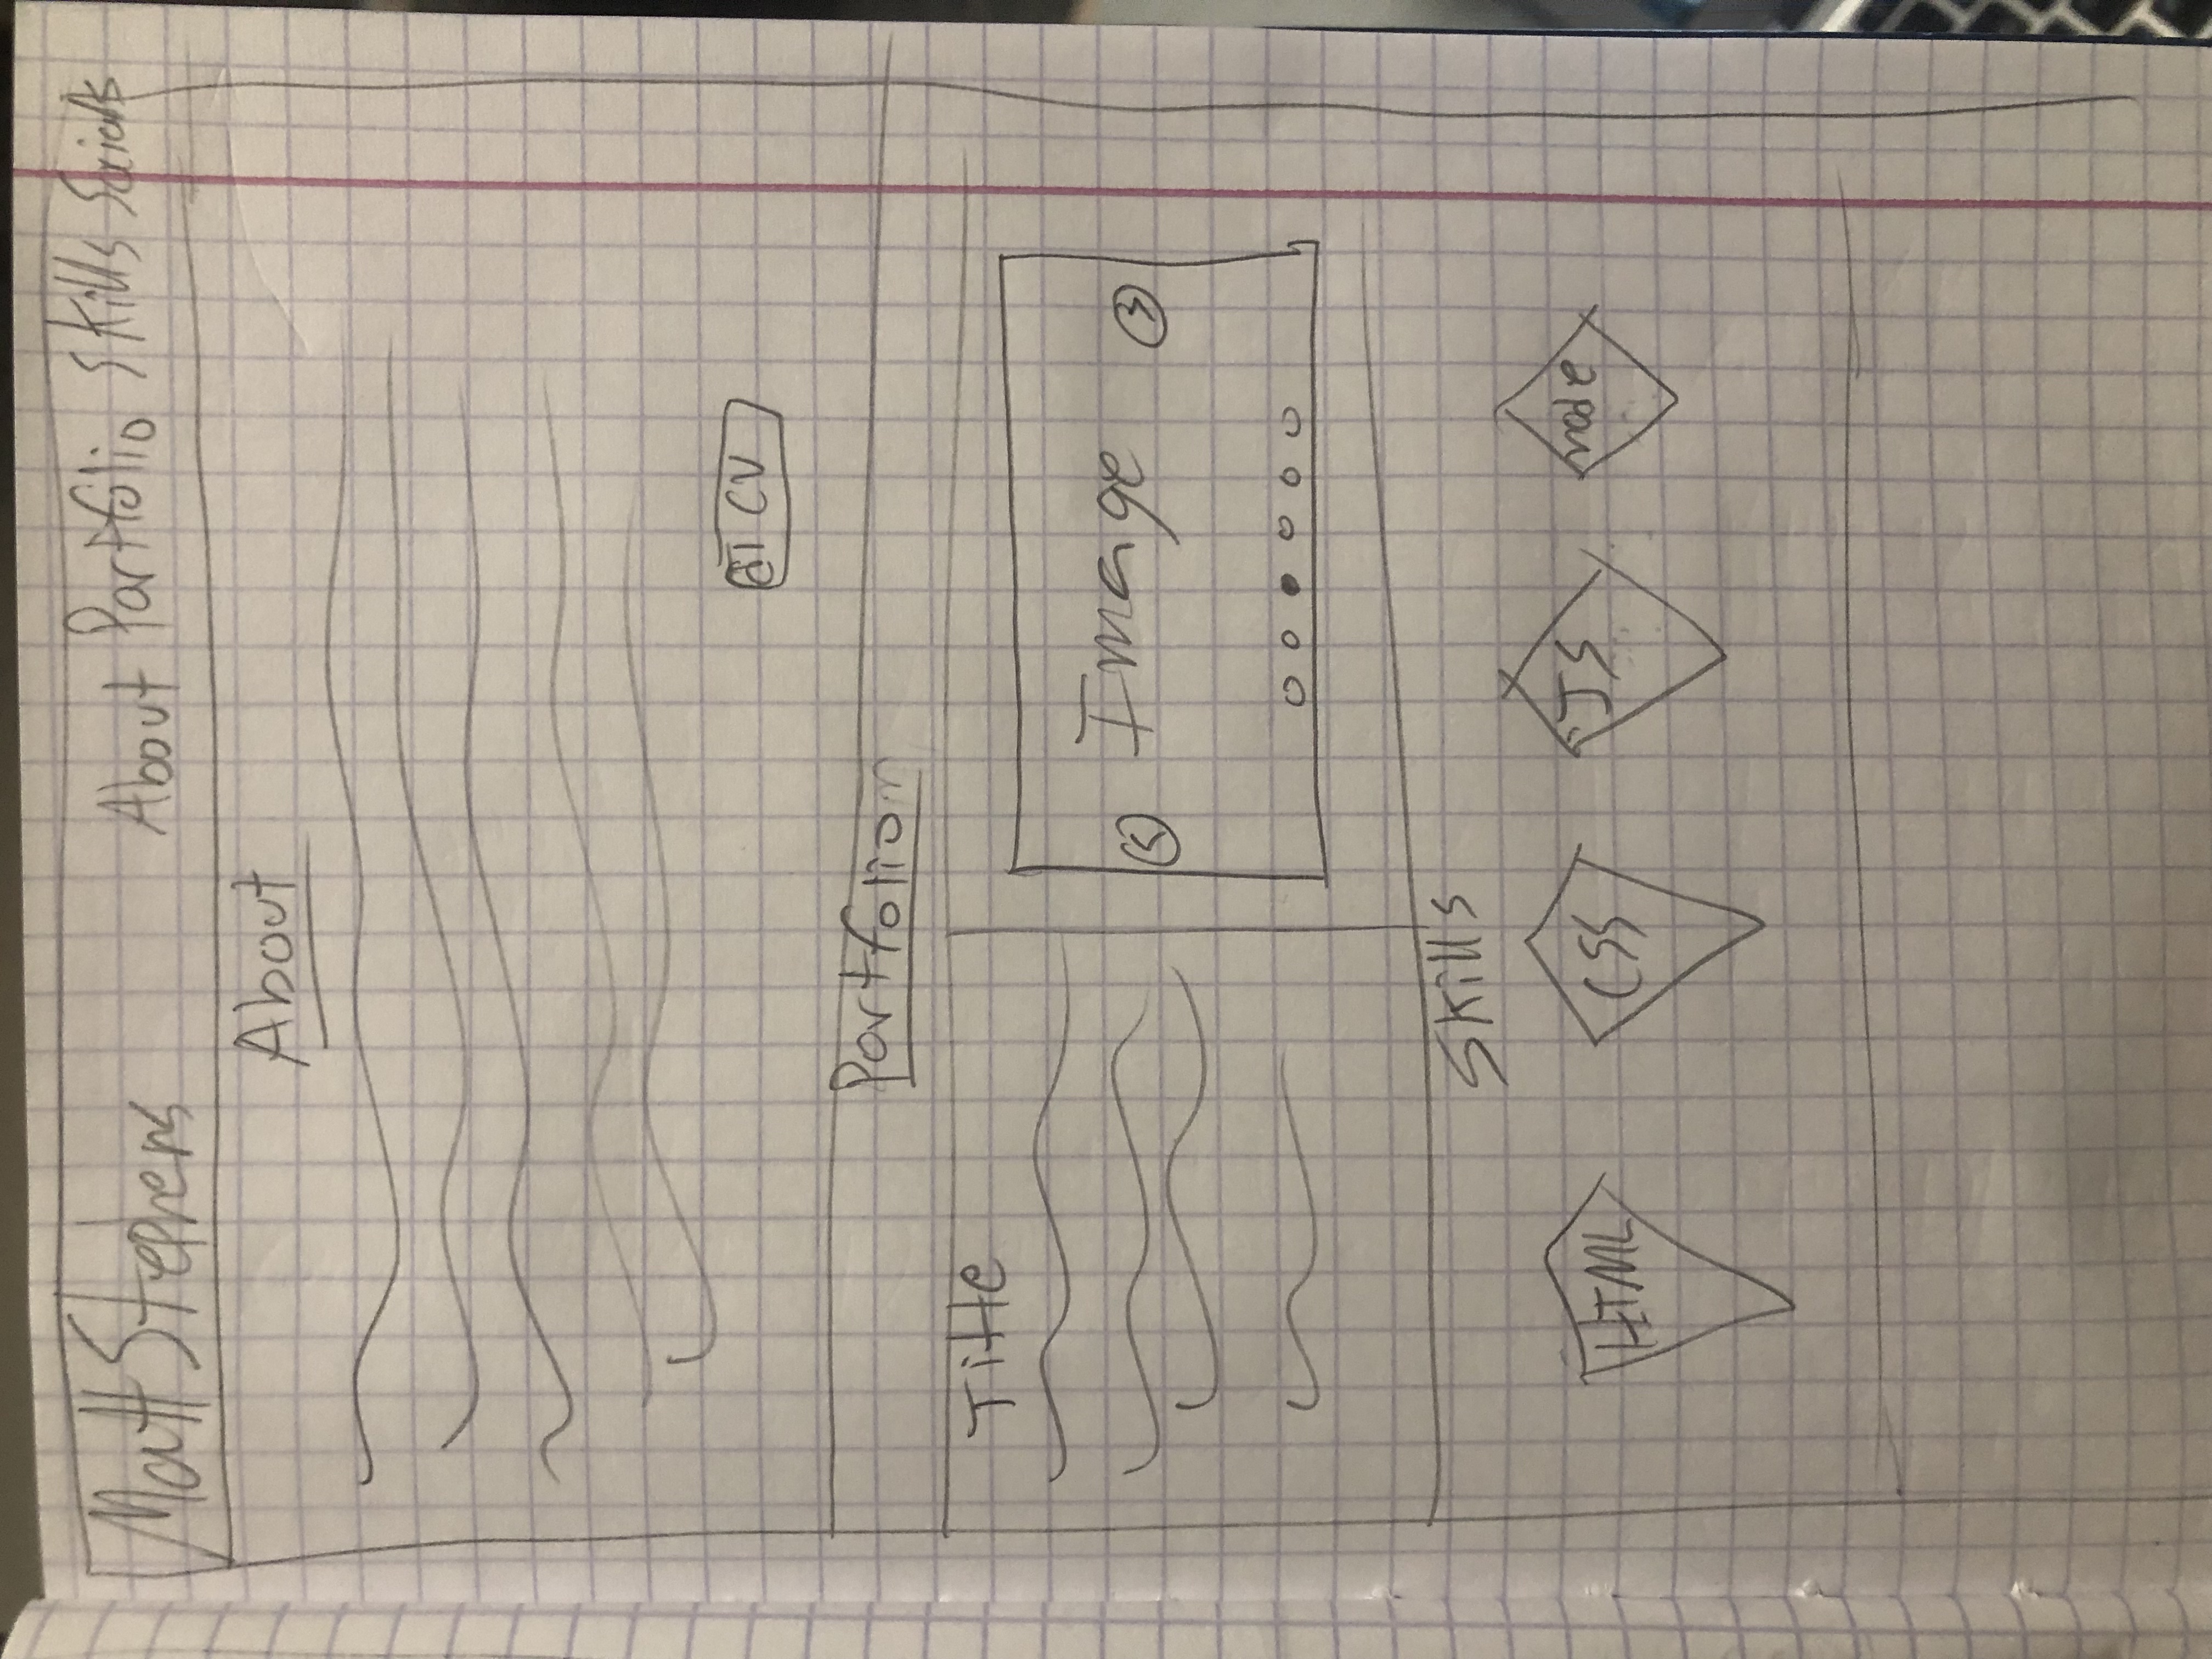 Matt Stephens About Portfolio Skills Socials
About
CV
Portfolio
Title
Image
Skills
HTML CSS JS node